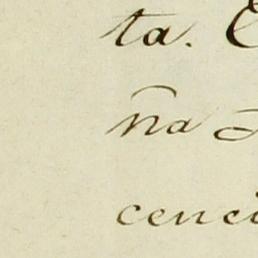 ta.
ña
cenci